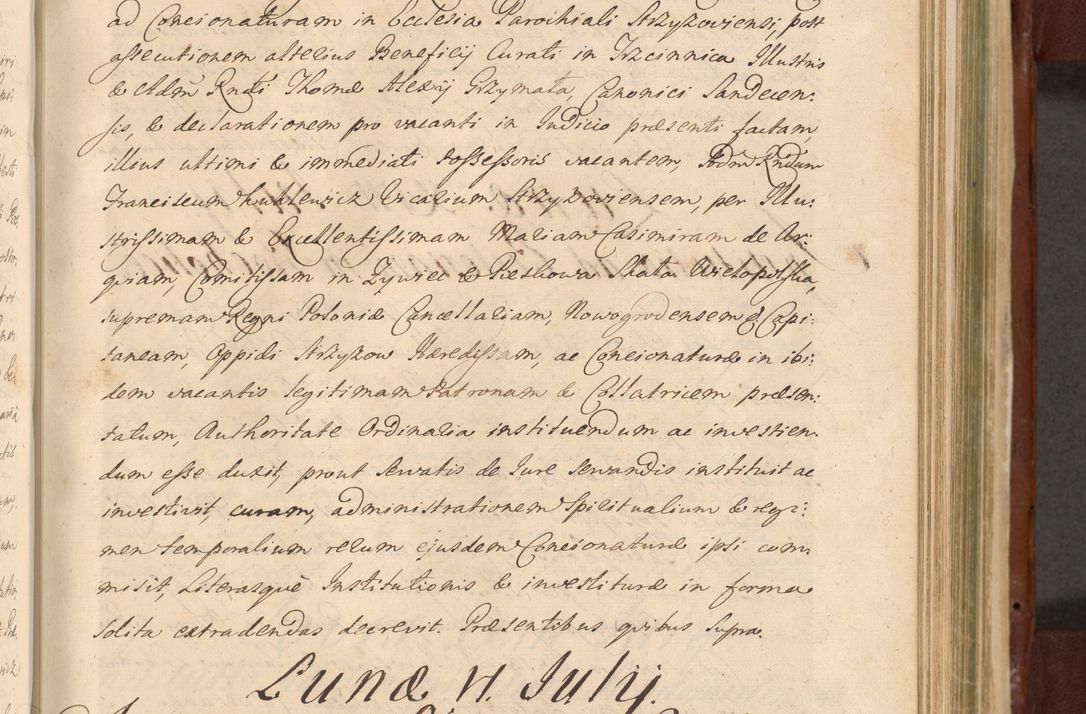 ad Concionaturam in Ecclesia Parochiali Strzyzoviensi, post
assecutionem alterius Beneficij Curati in Trzcinnica Illustris
& Adm Rndi Thomæ Alexij Grzymała, Canonici Sandecen:
sis, & declarationem pro vacanti in Judicio præsenti factam
illius ultimi & immediati Possessoris vacantem, Adm Rndum
Franciscum Vicarium Strzyzoviensem, per Illu:
strissimam & Excellentissimam Mariam Casimiram de Ar:
quiam, Comitissam in Zywiec & Pieskowa Skała Wielopolska,
supremam Regni Poloniæ Cancellariam, Nowogrodensem & Capi:
taneam, Oppidi Strzyzow Hæredissam, ac Concionaturæ in ibi:
dem vacantis legitimam Patronam & Collatricem præsen:
tatum, Authoritate Ordinaria instituendum ac investien:
dum esse duxit, prout servatis de Jure servandis instituit ac
investivit, curam, administrationem Spiritualium & regi:
men temporalium rerum ejusdem Concionaturæ ipsi com
misit, Literasque Institutionis & investituræ in forma
solita extradendas decrevit. Præsentibus quibus supra.
Lunæ VI. Julij.